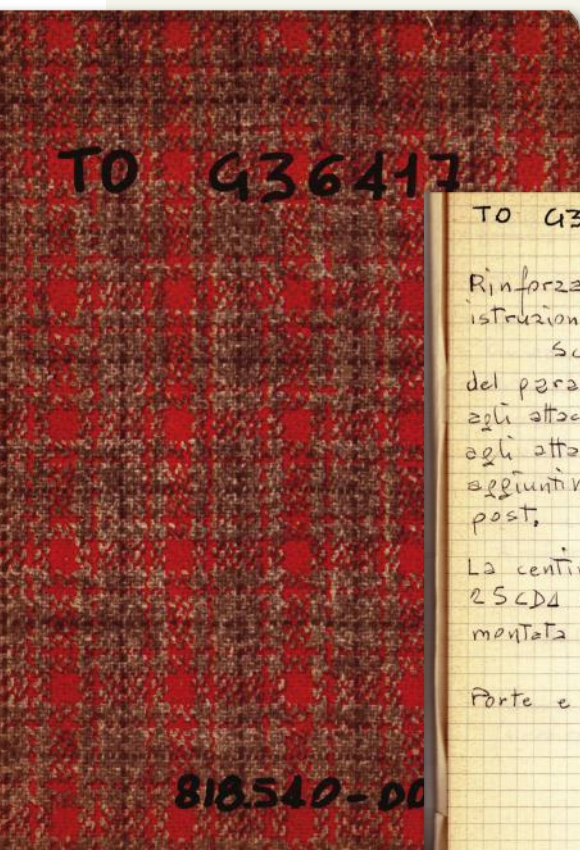 TO G36417
TO G3
Rinforza
istruzion
Sc
del para
agli attac
agli atta
aggiuntiv
post.
La centi
25CD4
montata
Porte e
818.540-00